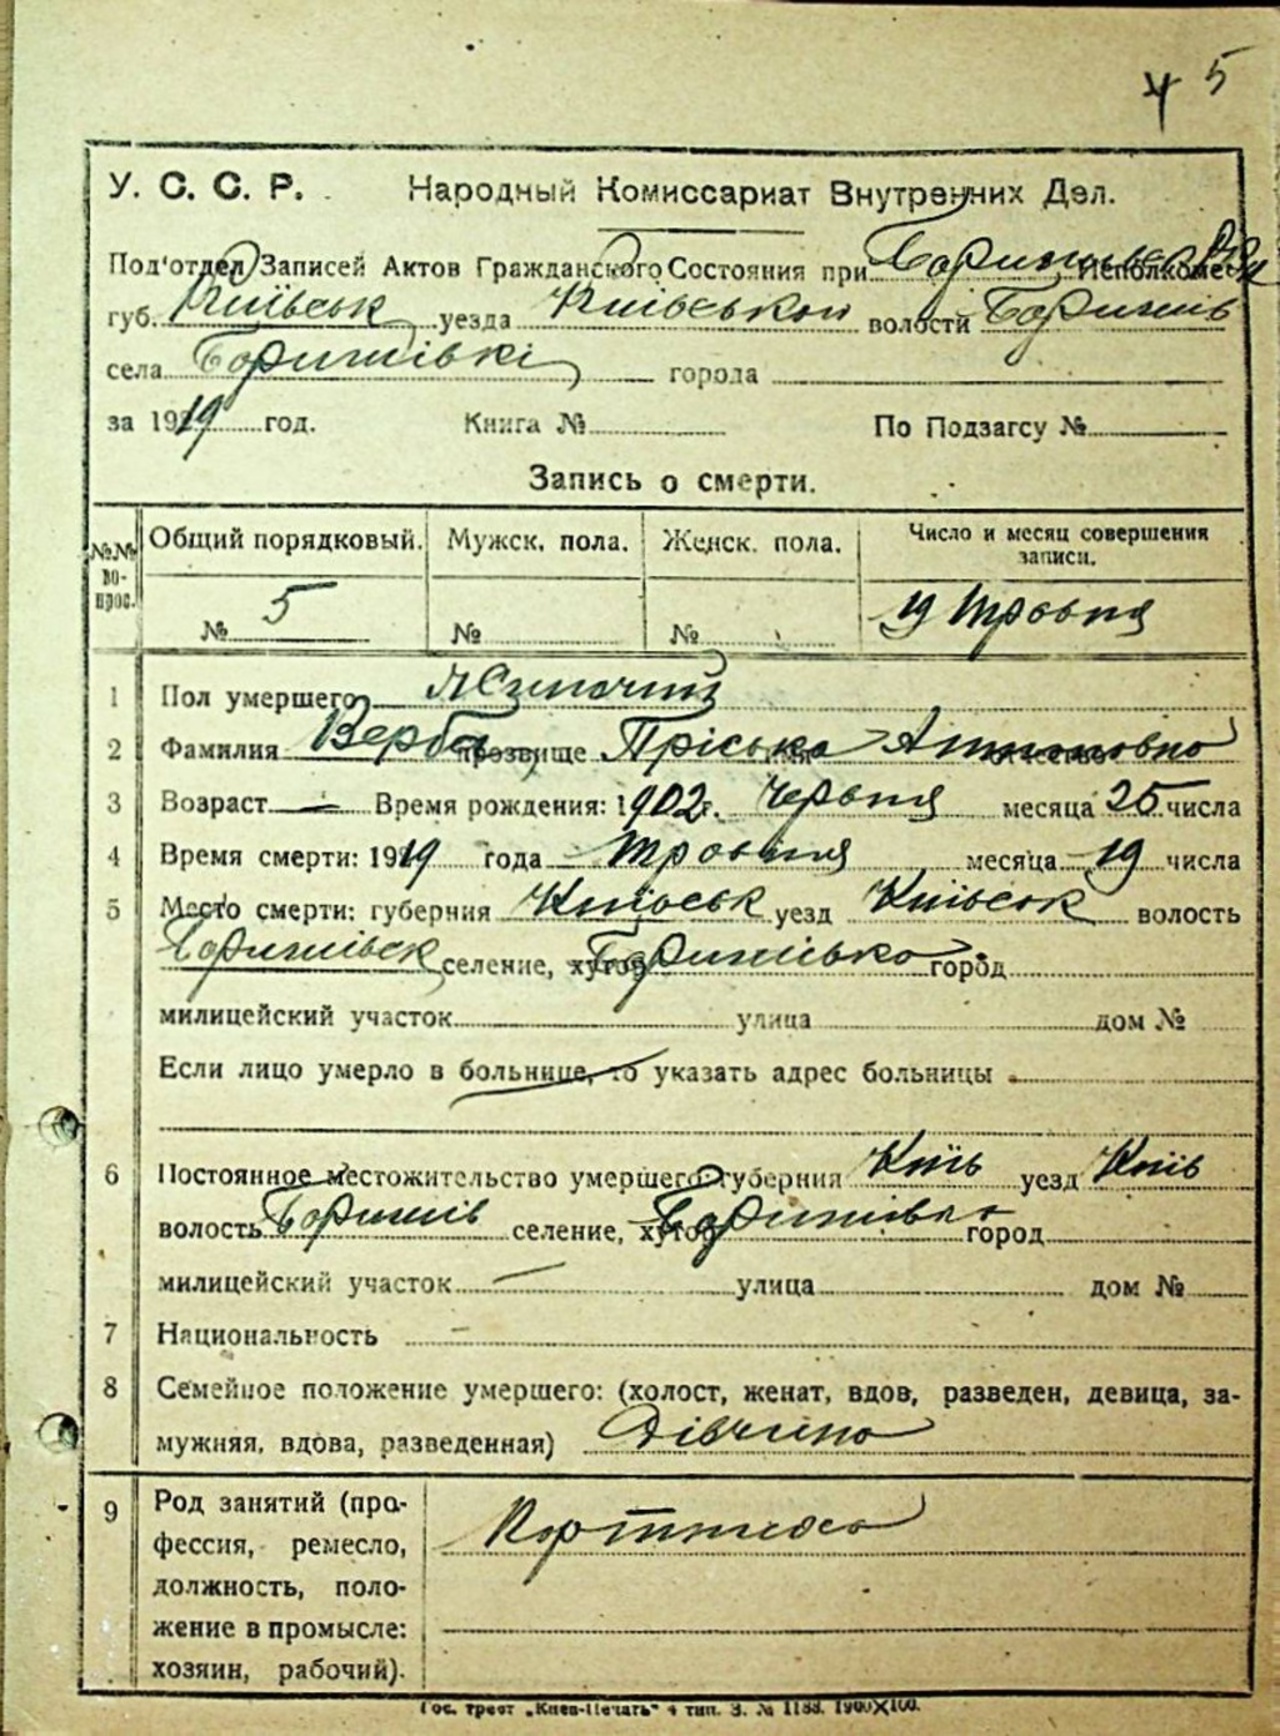 4 5
У. С. С. Р. Народный Комиссариат Внутренних Дел.
Под'отдел Записей Актов Гражданского Состояния при Исполкоме
губ. Київськ уезда Київської волости Боришів
села Боришівкі города
за 1919 год. Книга № По Подзагсу №
Запись о смерти.
№№ во-прос. Общий порядковый. Мужск. пола. Женск. пола. Число и месяц совершения записи.
№ 5 № № 19 Травня
1 Пол умершего
2 Фамилия Верба прозвище Пріська имя отчество
3 Возраст — Время рождения: 1902 г. Червня месяца 25 числа
4 Время смерти: 1919 года Травня месяца 19 числа
5 Место смерти: губерния Київськ уезд Київськ волость
Боришівск селение, хутор Боришівка город
милицейский участок улица дом №
Если лицо умерло в больнице, то указать адрес больницы
6 Постоянное местожительство умершего: губерния Київ уезд Київ
волость Боришів селение, хутор Боришівка город
милицейский участок — улица дом №
7 Национальность —
8 Семейное положение умершего: (холост, женат, вдов, разведен, девица, за-
мужняя, вдова, разведенная) Дівчина
9 Род занятий (про-
фессия, ремесло,
должность, поло-
жение в промысле:
хозяин, рабочий).
Портниха
Гос. трест „Киев-Печать" 4 тип. З. № 1183. 1900×100.